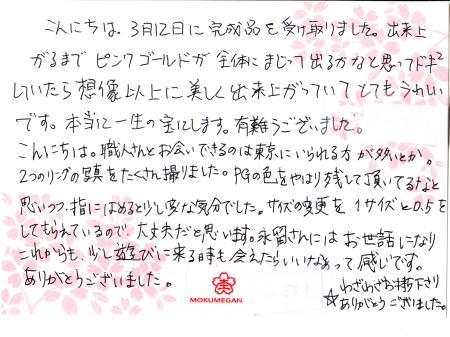 こんにちは。3月12日に完成品を受け取りました。出来上
がるまでピンクゴールドが全体にまじって出るかなと思ってドキ2
していたら想像以上に美しく出来上がっていてとてもうれしい
です。本当に一生の宝にします。有難うございました。
こんにちは。職人さんとお会いできるのは東京にいられる方が多いとか。
2つのリングの写真をたくさん撮りました。PGの色をやはり残して頂いてるなと
思いつつ、指にはめると少し変な気分でした。サイズの変更を1サイズと0.5を
してもらえているので、大丈夫だと思います。永留さんにはお世話になり
これからも、少し遊びに来る時も会えたらいいなあって感じです。
ありがとうございました。
☆わざわざお持ち下さり
ありがとうございました。
MOKUMEGAN